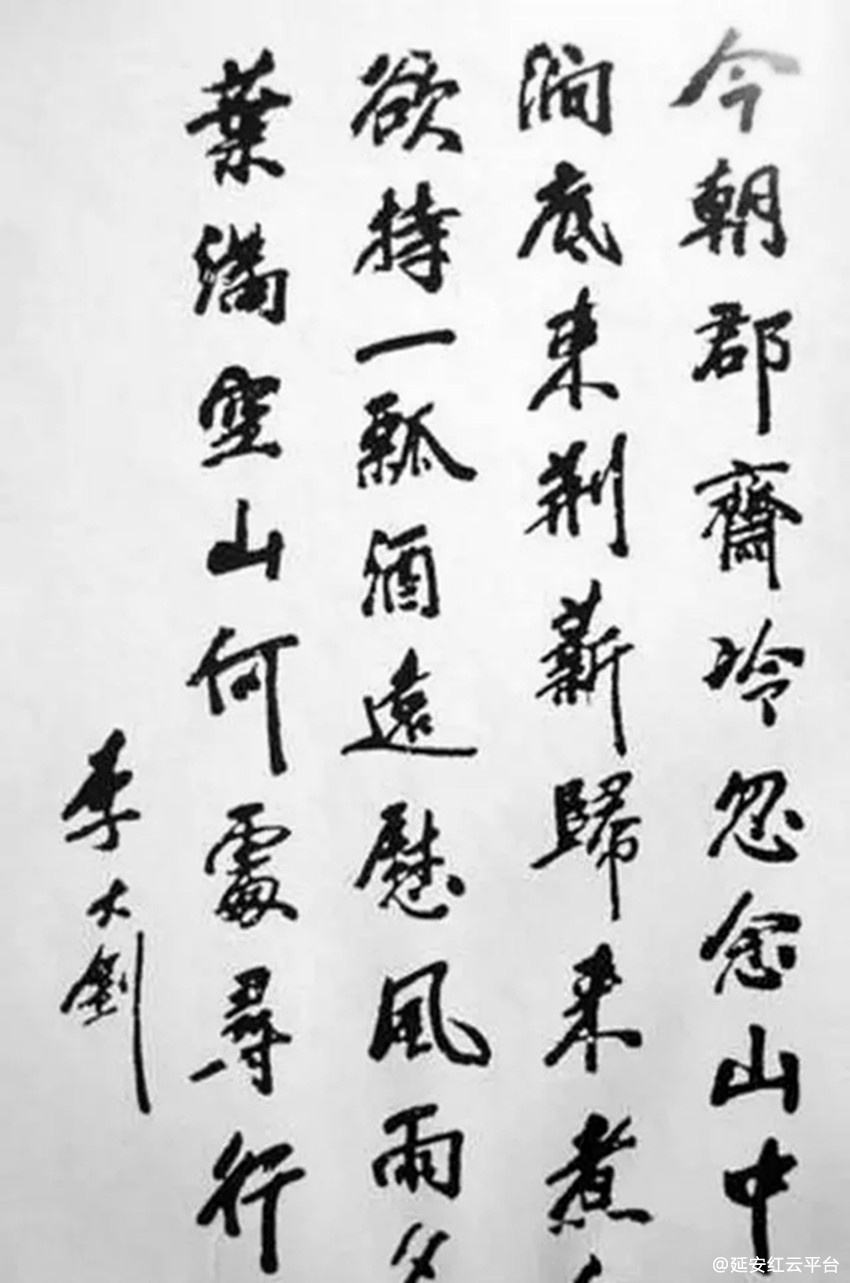 今朝郡齋冷忽念山中
澗底束荆薪歸来煮
欲持一瓢酒遠慰風雨夕
葉滿空山何處尋行
李大釗
@延安红云平台